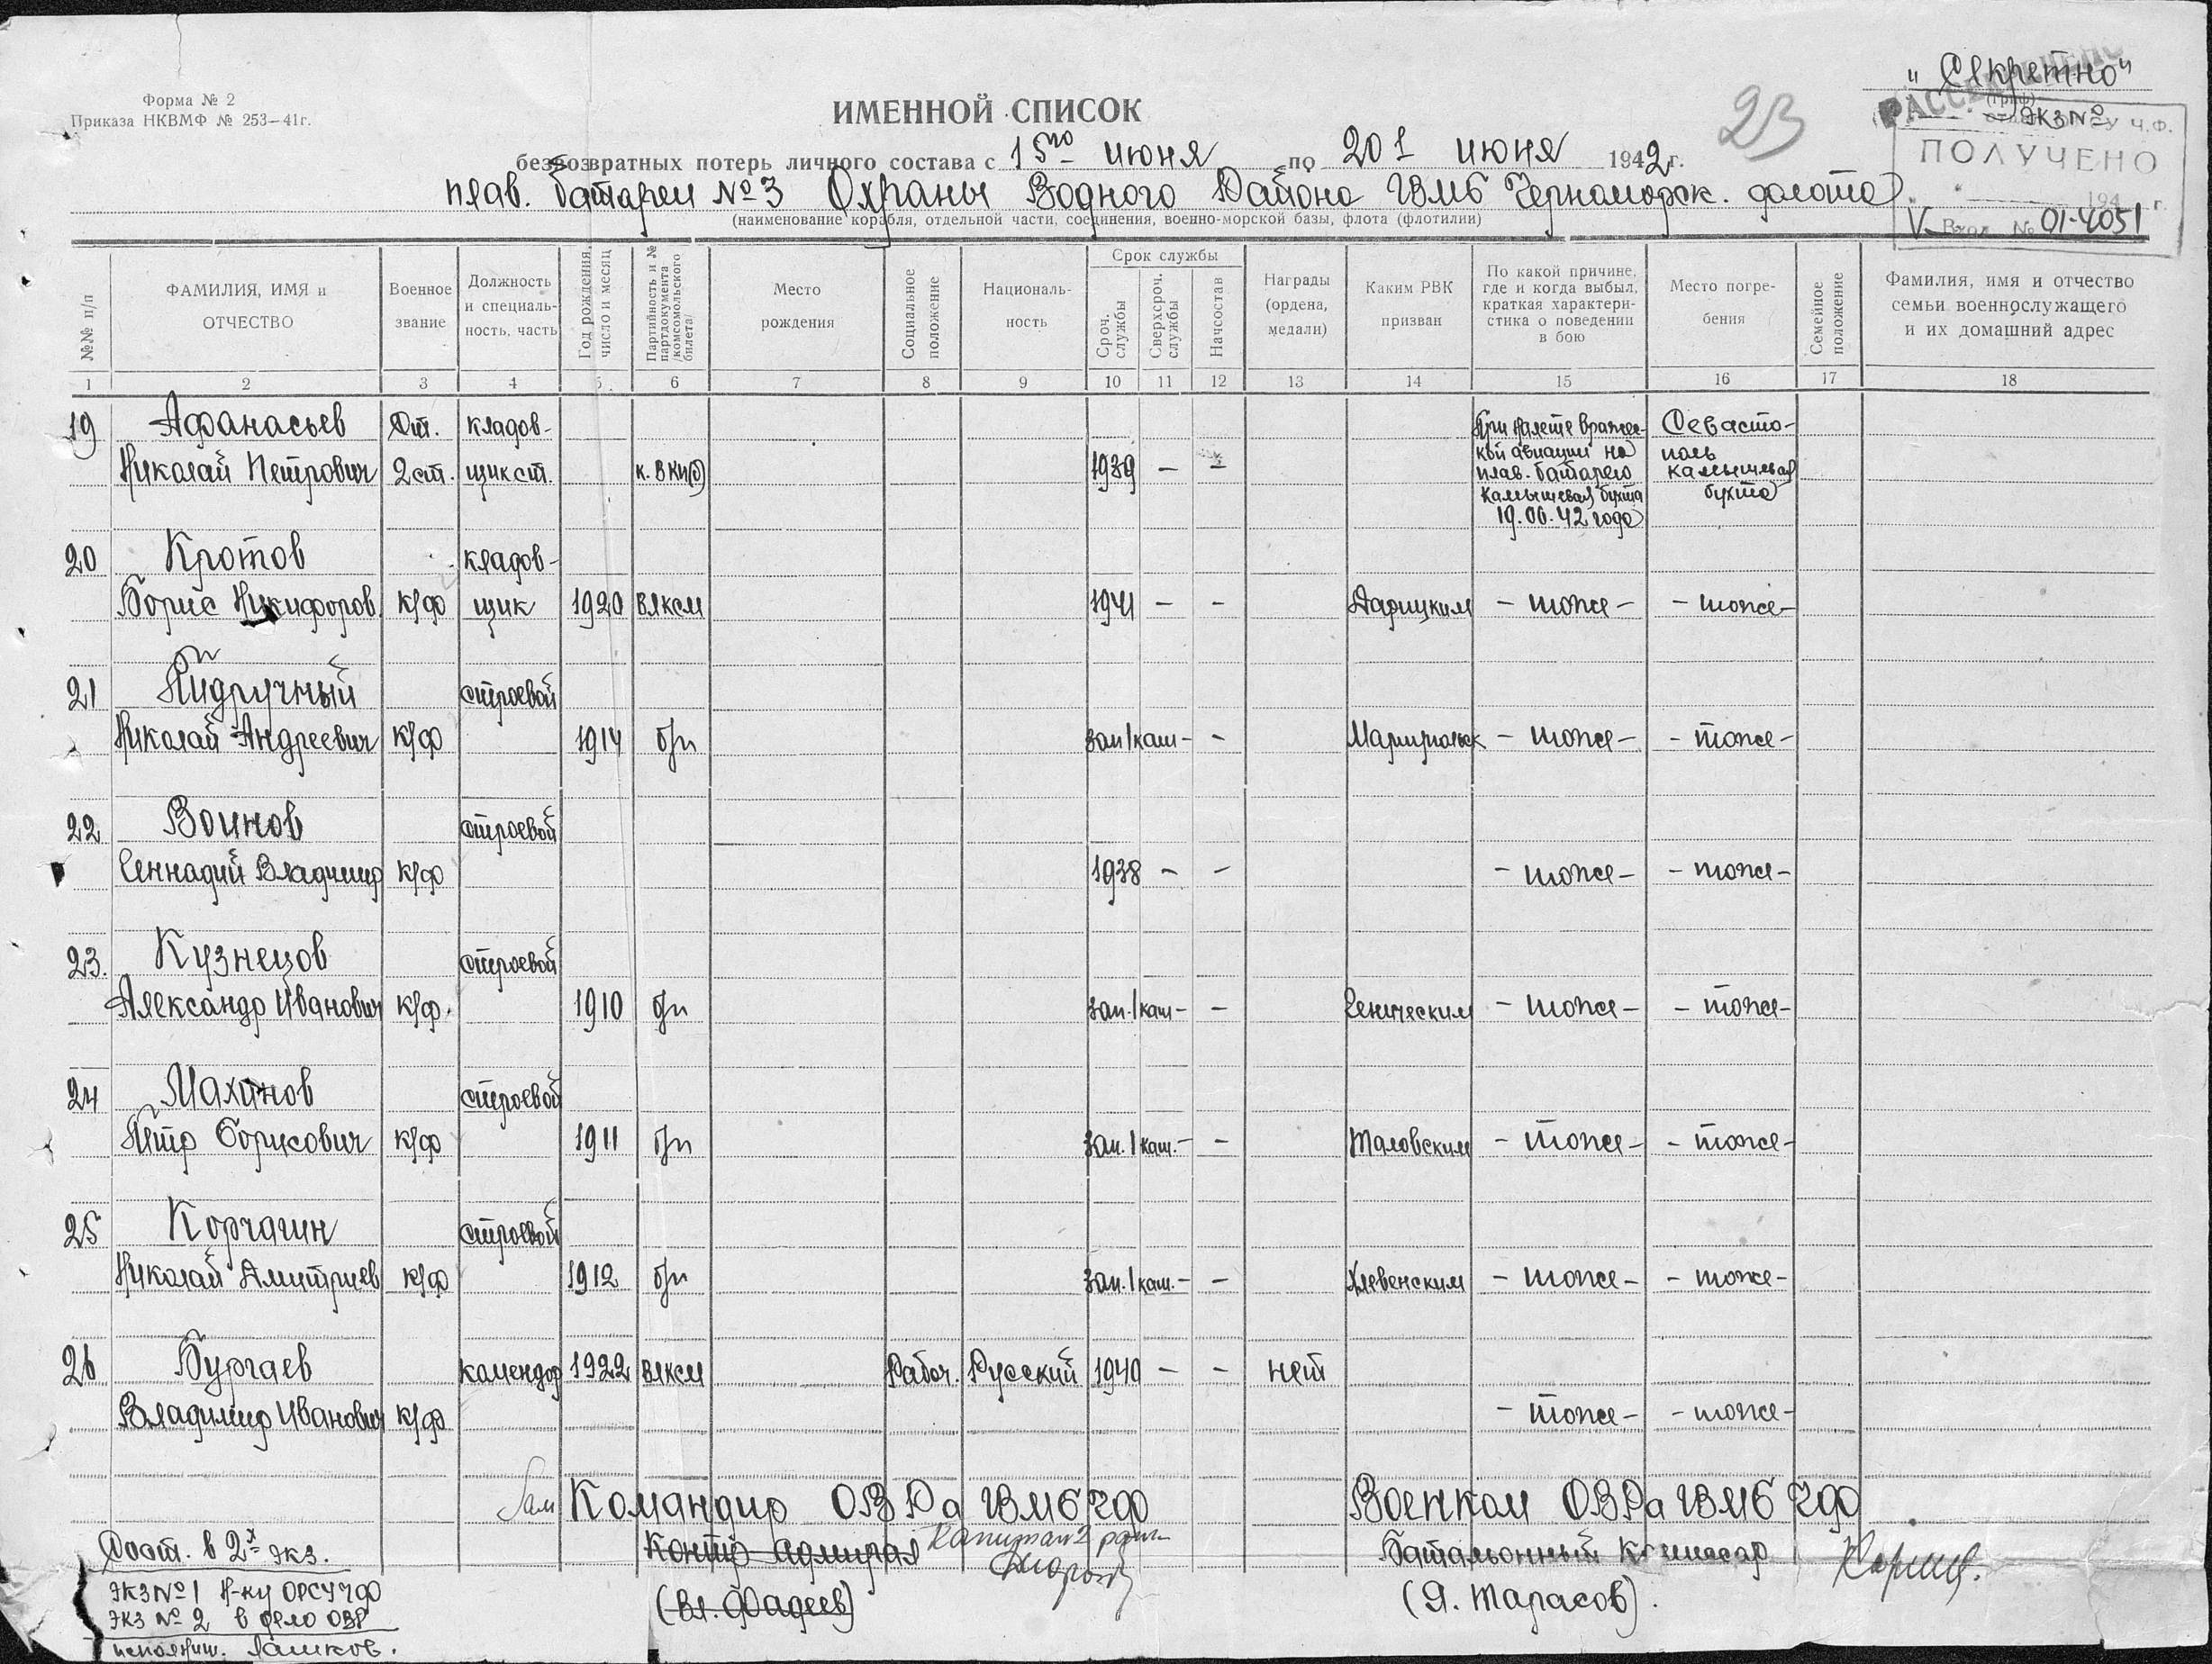 "Секретно"
(гриф)
РАССЕКРЕЧЕНО
Экз №
У Ч.Ф.
ПОЛУЧЕНО
194 г.
Вход. № 01-4051
Форма № 2
Приказа НКВМФ № 253—41г.
23
ИМЕННОЙ СПИСОК
безвозвратных потерь личного состава с 15го июня по 20е июня 1942г.
плав. батареи №3 Охраны Водного Района ГВМБ Черноморск. флота
(наименование корабля, отдельной части, соединения, военно-морской базы, флота (флотилии)
№№ п/п
ФАМИЛИЯ, ИМЯ и ОТЧЕСТВО
Военное звание
Должность и специальность, часть
Год рождения, число и месяц
Партийность и № партдокумента /комсомольского билета/
Место рождения
Социальное положение
Националь-ность
Срок службы
Сроч. службы
Сверхсроч. службы
Начсостав
Награды (ордена, медали)
Каким РВК призван
По какой причине, где и когда выбыл, краткая характери-стика о поведении в бою
Место погре-бения
Семейное положение
Фамилия, имя и отчество семьи военнослужащего и их домашний адрес
1 2 3 4 5 6 7 8 9 10 11 12 13 14 15 16 17 18
19 Афанасьев Ст. кладов- При налете вражес- Севасто-
Николай Петрович 2 ст. щик ст. к. ВКП(б) 1939 — — кой авиации на поль
плав. батарею Камышевая
Камышевая бухта бухта
19.06.42 года
20 Кротов кладов-
Борис Никифоров. к/ф щик 1920 ВЛКСМ 1941 — — Дарицким — тоже — — тоже —
21 Пидручный строевой
Николай Андреевич к/ф 1914 б/п зап/кат — — Мариупольск — тоже — — тоже —
22 Воинов строевой
Геннадий Владимир к/ф 1938 — — — тоже — — тоже —
23. Кузнецов строевой
Александр Иванович к/ф. 1910 б/п зап./кат — — Геническим — тоже — — тоже —
24 Махинов строевой
Пётр Борисович к/ф 1911 б/п зап./кат. — — Таловским — тоже — — тоже —
25 Корчагин строевой
Николай Дмитриев к/ф 1912 б/п зап./кат. — — Хлевенским — тоже — — тоже —
26 Бургаев комендор 1922 ВЛКСМ Рабоч. Русский 1940 — — нет
Владимир Иванович к/ф — тоже — — тоже —
Зам Командир ОВРа ГВМБ ЧФ Военком ОВРа ГВМБ ЧФ
Контр адмирал Капитан 2 ранга Батальонный комиссар
(Вл. Фадеев) (Я. Тарасов).
Сост. в 2х экз.
экз №1 Н-ку ОРСУЧФ
экз №2 в дело ОВР
исполнит. Пашков.